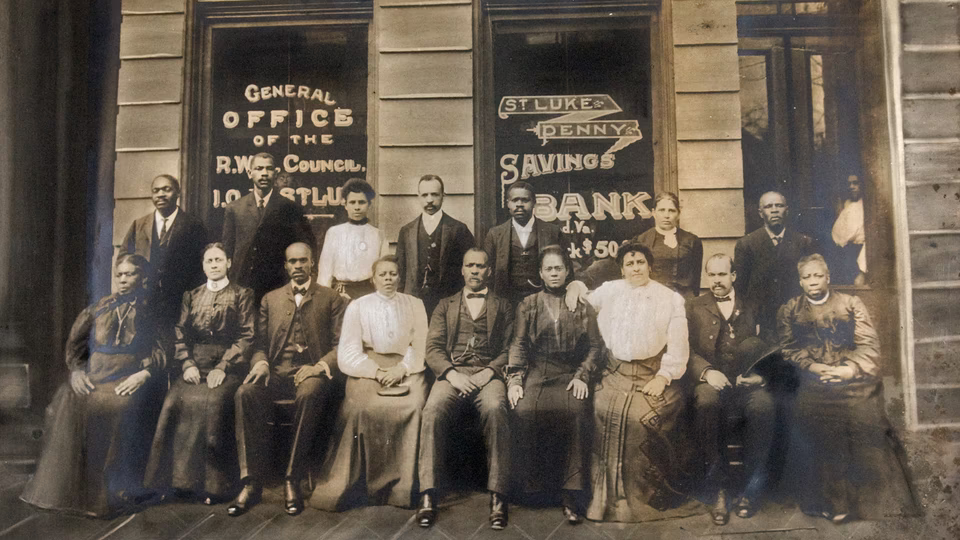 GENERAL
OFFICE
OF THE
R.W. COUNCIL,
I.O. ST LU
ST LUKE
PENNY
SAVINGS
BANK
d, Va.
k $50